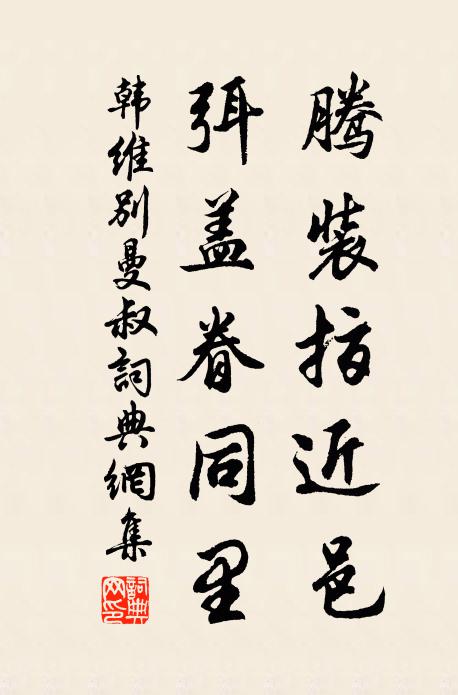 腾装指近邑
弭盖眷同里
韩维别曼叔词典網集
詞典网印